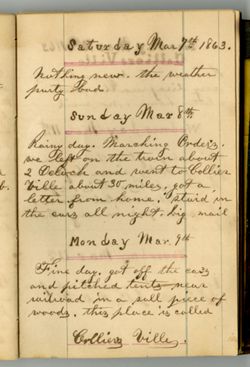 Saturday Mar 7th 1863.
Nothing new. the weather
purty bad.
Sunday Mar 8th
Rainy day. Marching Orders.
we left on the train about
2 Oclock and went to Collier
Ville about 30 miles. got a
letter from home. staid in
the cars all night. big mail
Monday Mar 9th
Fine day. got off the cars
and pitched tents near
railroad in a sall piece of
woods. this place is called
Colliers Ville.